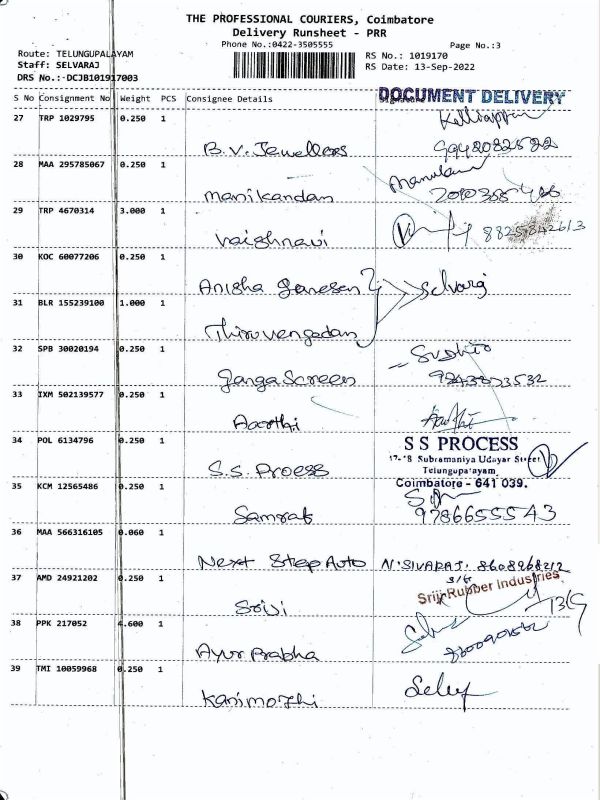 THE PROFESSIONAL COURIERS, Coimbatore
Delivery Runsheet - PRR
Phone No.:0422-3505555
Page No.:3
Route: TELUNGUPALAYAM
Staff: SELVARAJ
DRS No.:-DCJB101917003
RS No.: 1019170
RS Date: 13-Sep-2022
S No Consignment No Weight PCS Consignee Details Signature
DOCUMENT DELIVERY
27 TRP 1029795 0.250 1
B.V. Jewellers
9942082522
28 MAA 295785067 0.250 1
manikandan
29 TRP 4670314 3.000 1
Vaishnavi
8825842613
30 KOC 60077206 0.250 1
Anisha Ganesan
Selvaraj
31 BLR 155239100 1.000 1
Thiruvengadam
32 SPB 30020194 0.250 1
Ganga Screen
33 IXM 502139577 0.250 1
Aarthi
34 POL 6134796 0.250 1
S.S. Proess
S S PROCESS
17-18 Subramaniya Udayar Street
Telungupalayam,
Coimbatore - 641 039.
35 KCM 12565486 0.250 1
Samrat
9786655543
36 MAA 566316105 0.060 1
Next Step Auto
N. SIVARAJ. 8608968212
37 AMD 24921202 0.250 1
Sriji
Sriji Rubber Industries
13/9
38 PPK 217052 4.600 1
Ayur Prabha
39 TMI 10059968 0.250 1
Kanimozhi